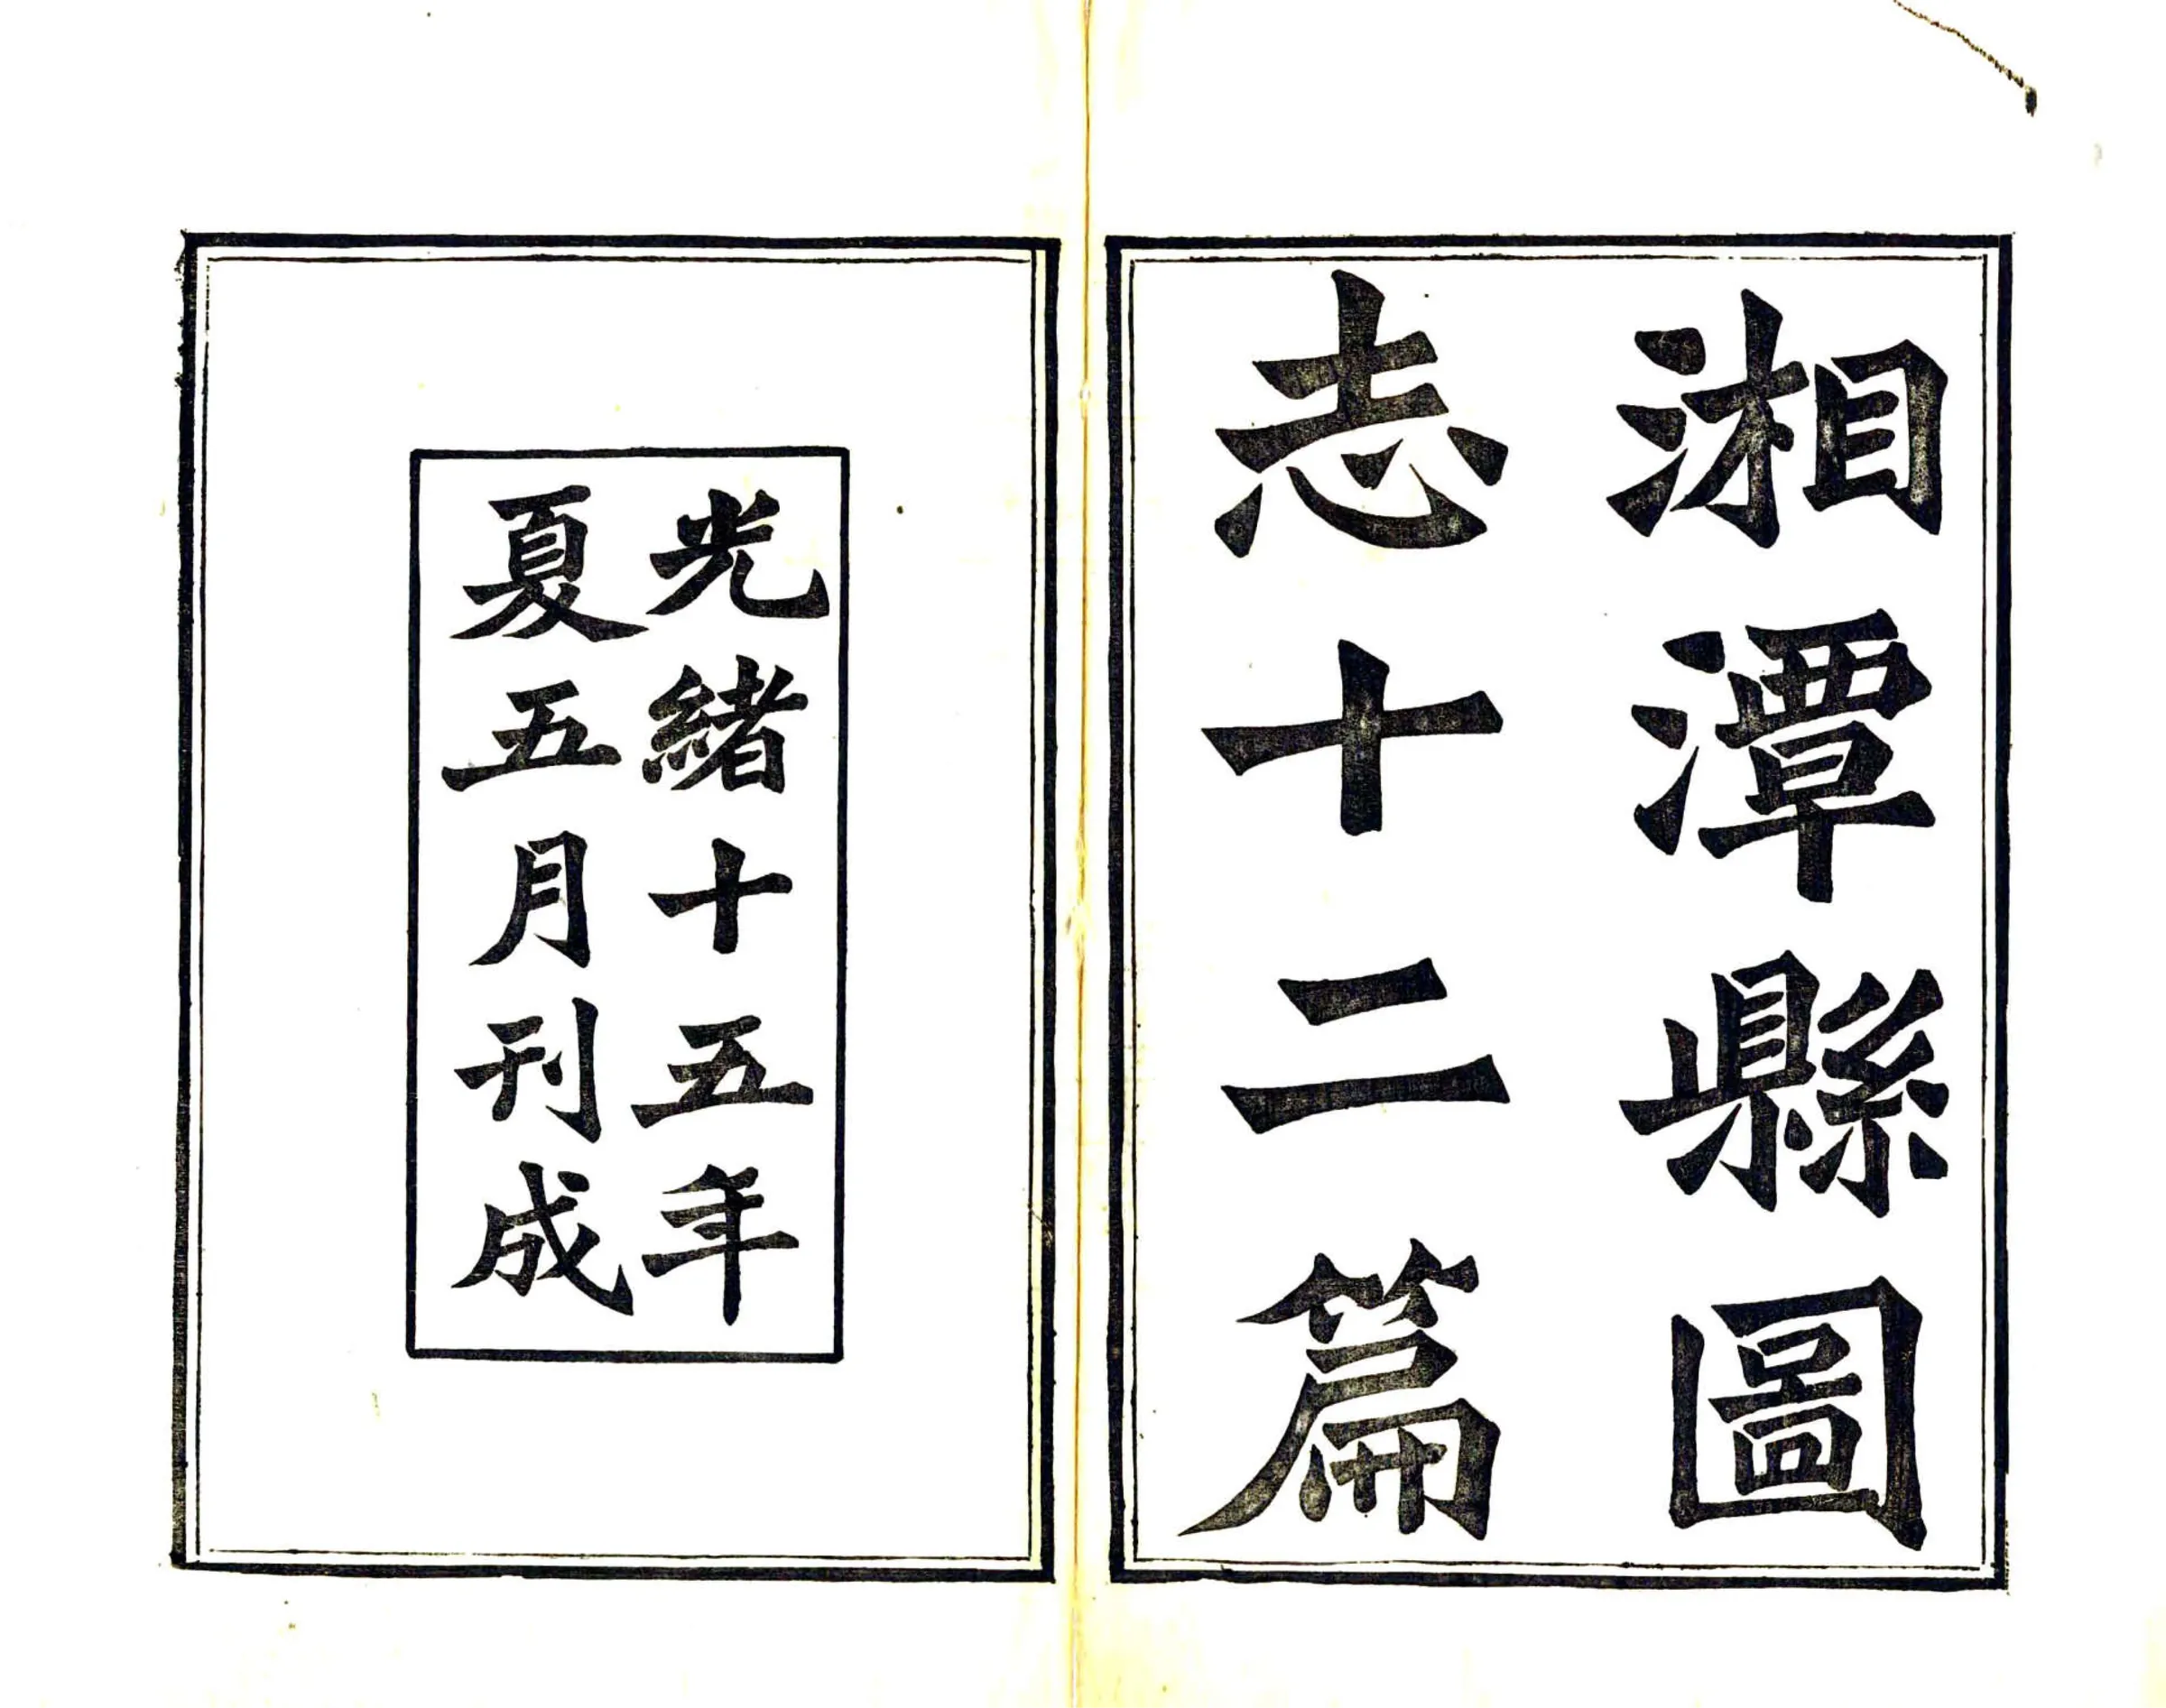 湘潭縣圖
志十二篇
光緒十五年
夏五月刊成